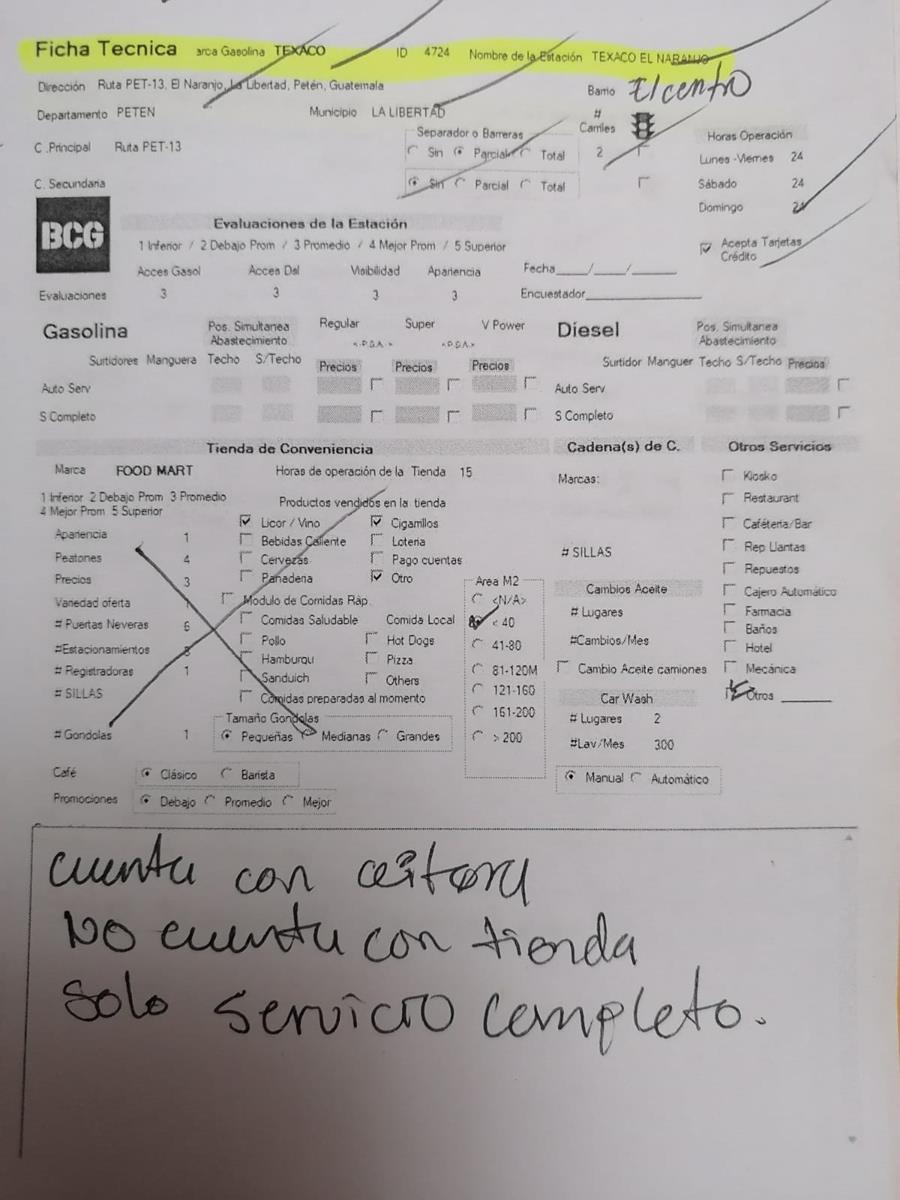 Ficha Tecnica arca Gasolina TEXACO ID 4724 Nombre de la Estación TEXACO EL NARANJO
Dirección Ruta PET-13, El Naranjo, La Libertad, Petén, Guatemala Barrio El centro
Departamento PETEN Municipio LA LIBERTAD # Carriles Horas Operación
C .Principal Ruta PET-13 Separador o Barreras Sin Parcial Total 2 Lunes -Viernes 24
C. Secundaria Sin Parcial Total Sábado 24
Domingo 24
BCG
Evaluaciones de la Estación
1 Inferior / 2 Debajo Prom / 3 Promedio / 4 Mejor Prom / 5 Superior Acepta Tarjetas Crédito
Acces Gasol Acces Dsl Visibilidad Apariencia Fecha___/___/___
Evaluaciones 3 3 3 3 Encuestador
Gasolina Pos. Simultanea Abastecimiento Regular Super V Power Diesel Pos. Simultanea Abastecimiento
Surtidores Manguera Techo S/Techo Precios Precios Precios Surtidor Manguer Techo S/Techo Precios
Auto Serv Auto Serv
S Completo S Completo
Tienda de Conveniencia Cadena(s) de C. Otros Servicios
Marca FOOD MART Horas de operación de la Tienda 15 Marcas: Kiosko
1 Inferior 2 Debajo Prom 3 Promedio Productos vendidos en la tienda Restaurant
4 Mejor Prom 5 Superior Licor / Vino Cigarrillos Cafétería/Bar
Apariencia 1 Bebidas Caliente Loteria Rep Llantas
Peatones 4 Cervezas Pago cuentas # SILLAS Repuestos
Precios 3 Panaderia Otro Area M2 Cambios Aceite Cajero Automático
Variedad oferta 1 Modulo de Comidas Ráp. <N/A> # Lugares Farmacia
# Puertas Neveras 6 Comidas Saludable Comida Local < 40 Baños
#Estacionamientos 3 Pollo Hot Dogs 41-80 #Cambios/Mes Hotel
# Registradoras 1 Hamburqu Pizza 81-120M Cambio Aceite camiones Mecánica
# SILLAS Sanduich Others 121-160 Car Wash Otros
Comidas preparadas al momento
# Gondolas 1 Tamaño Gondolas 161-200 # Lugares 2
Pequeñas Medianas Grandes > 200 #Lav/Mes 300
Café Clásico Barista Manual Automático
Promociones Debajo Promedio Mejor
cuenta con
No cuenta con tienda
Solo Servicio completo.